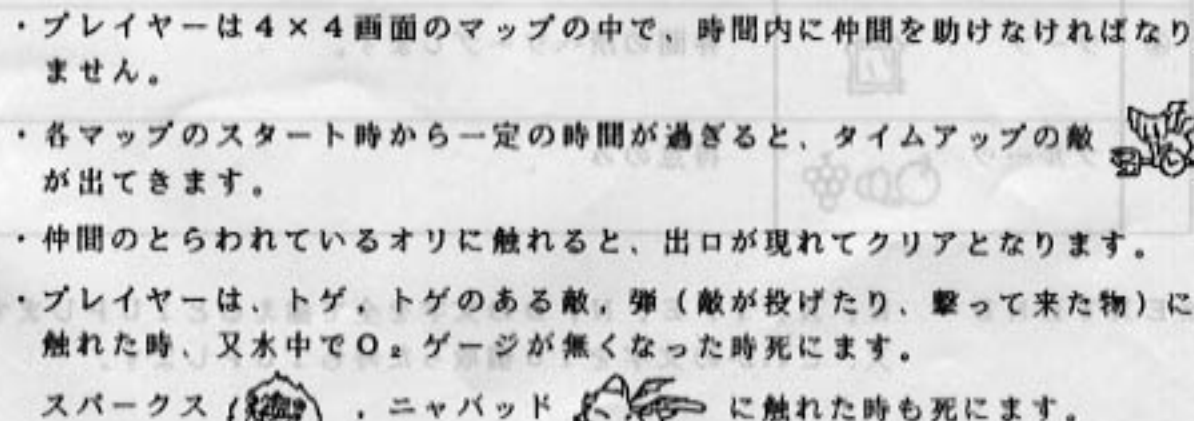 ・プレイヤーは４×４画面のマップの中で、時間内に仲間を助けなければなり
ません。
・各マップのスタート時から一定の時間が過ぎると、タイムアップの敵
が出てきます。
・仲間のとらわれているオリに触れると、出口が現れてクリアとなります。
・プレイヤーは、トゲ，トゲのある敵，弾（敵が投げたり、撃って来た物）に
触れた時、又水中でＯ₂ゲージが無くなった時死にます。
スパークス（ ），ニャバッド に触れた時も死にます。